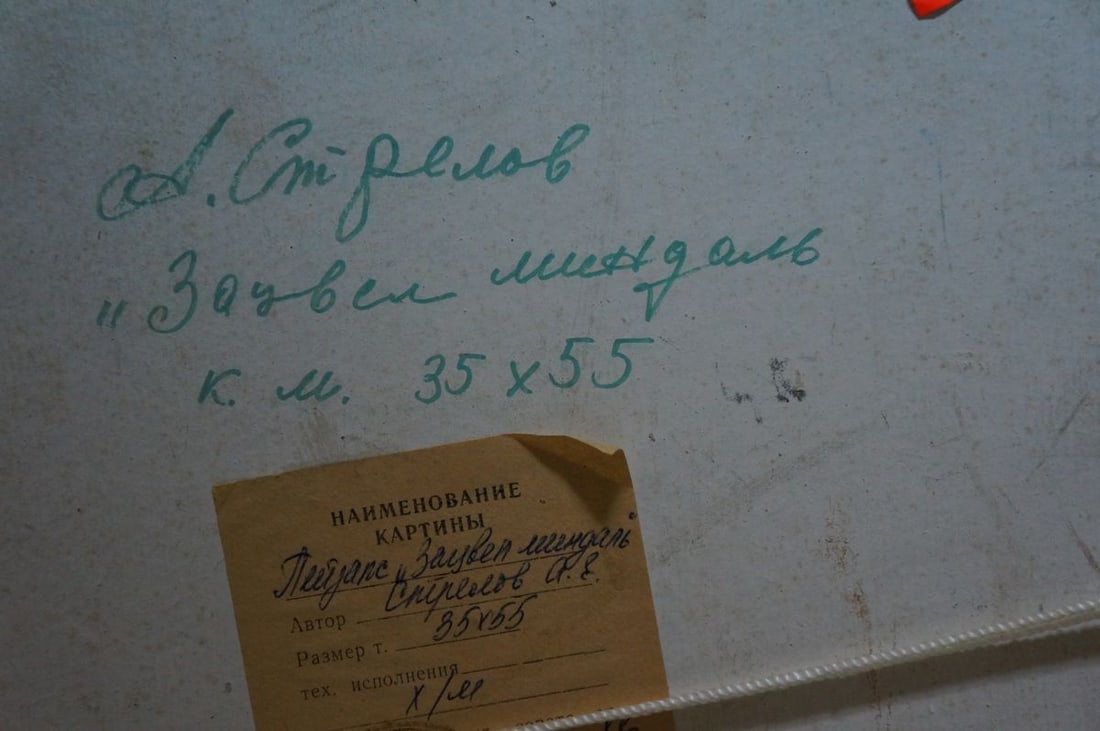 А. Стрелов
„Зацвел миндаль
к. м. 35 х 55
НАИМЕНОВАНИЕ
КАРТИНЫ
Пейзапс „Зацвел миндаль"
Автор Стрелов А. Е.
Размер т. 35х55
тех. исполнения
х/м